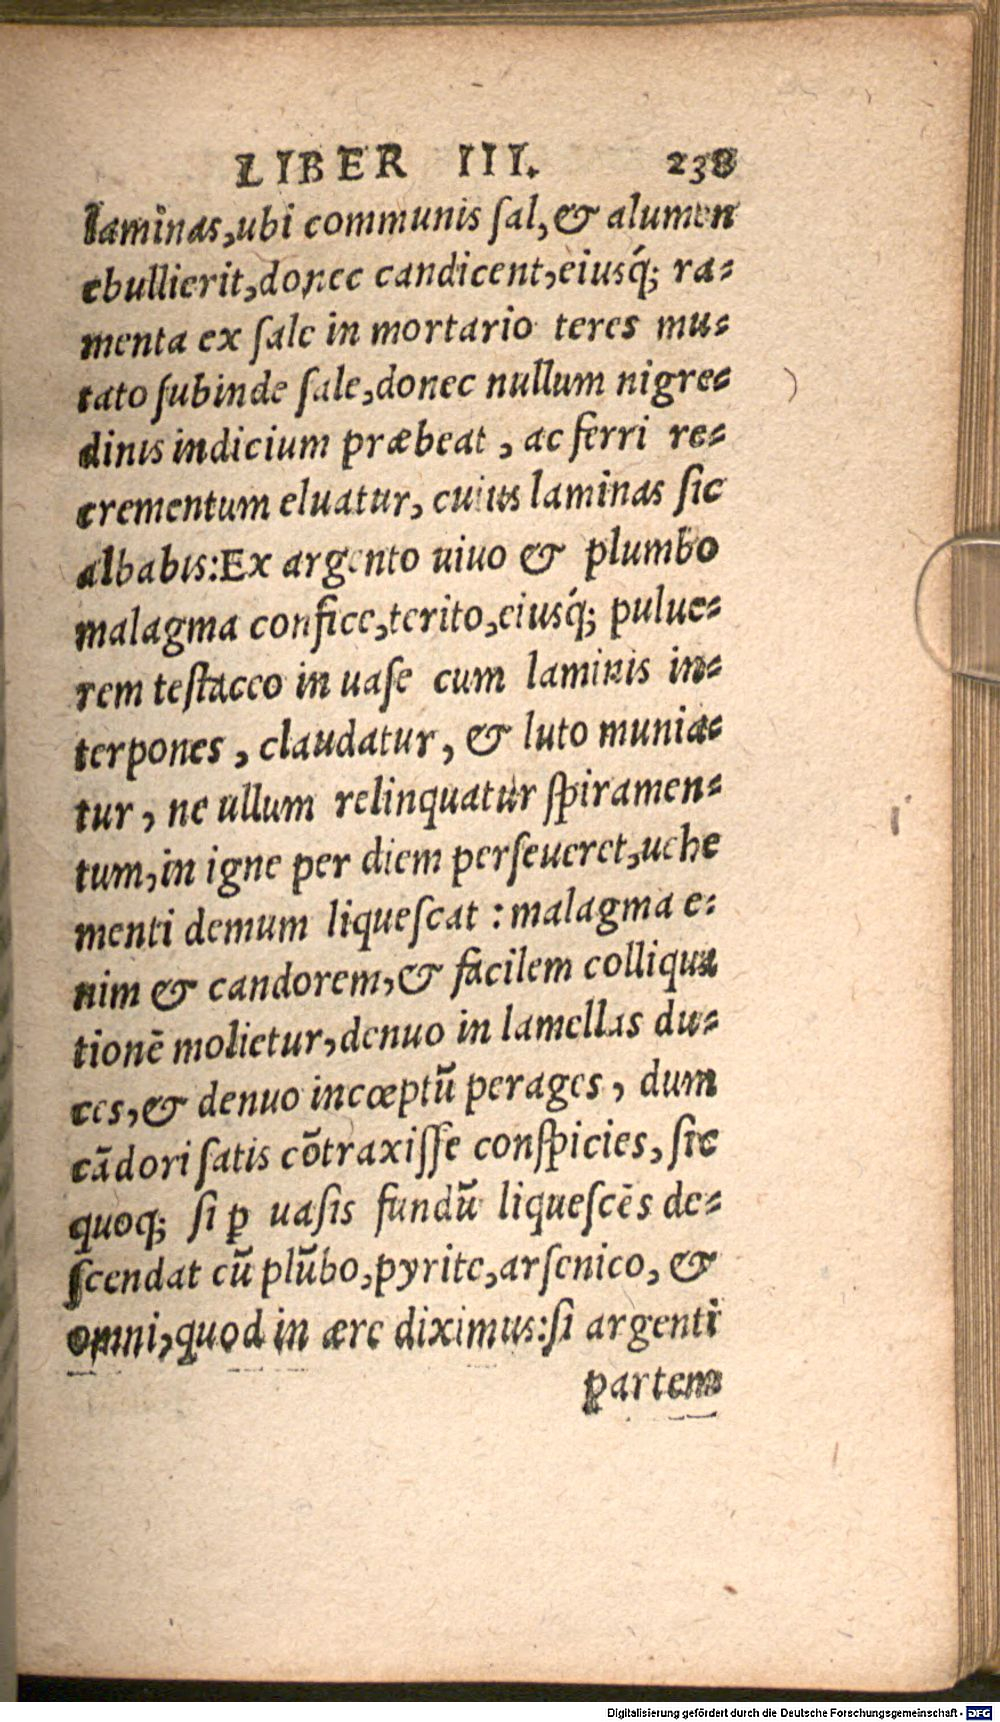 LIBER III. 238
laminas,ubi communis ſal,& alumen
ebullierit,donec candicent,eiusq́; ra-
menta ex ſale in mortario teres mu-
tato ſubinde ſale,donec nullum nigre-
dinis indicium præbeat , ac ferri re-
crementum eluatur, cuius laminas ſic
albabis:Ex argento uiuo & plumbo
malagma confice,terito,eiusq́; pulue-
rem teſtaceo in uaſe cum laminis in-
terpones , claudatur, & luto munia-
tur , ne ullum relinquatur ſpiramen-
tum,in igne per diem perſeueret,uehe
menti demum liqueſcat : malagma e-
nim & candorem,& facilem colliqua
tionē molietur,denuo in lamellas du-
ces,& denuo incœptū perages , dum
cādori ſatis cōtraxiſſe conſpicies, ſic
quoq; ſi ꝑ uaſis fundū liqueſcēs de-
ſcendat cū plūbo,pyrite,arſenico, &
omni,quod in ære diximus:ſi argenti
partem
Digitalisierung gefördert durch die Deutsche Forschungsgemeinschaft - DFG